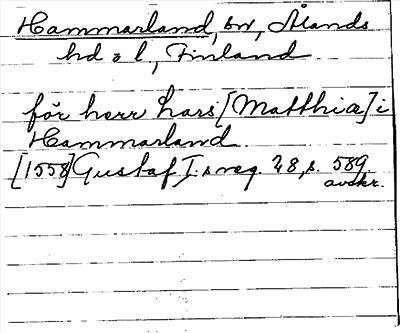 Hammarland, sn, Ålands
hd o l, Finland
för herr Lars [Matthiæ] i
Hammarland
[1558] Gustaf I:s reg. 28, s. 589.
avskr.